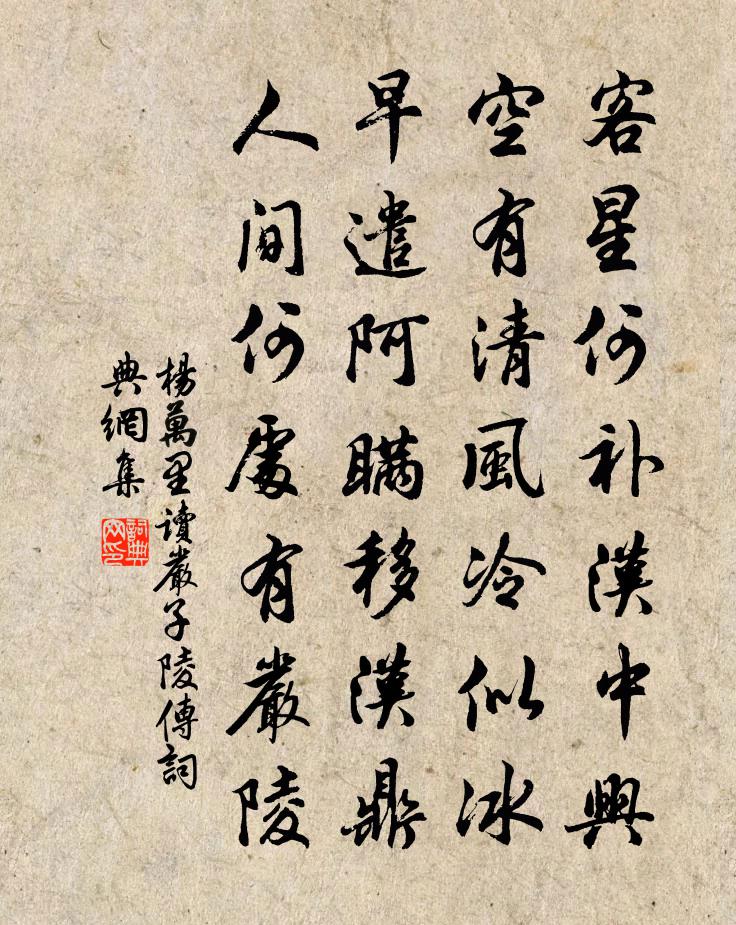 客星何补漢中興
空有清風冷似冰
早遣阿瞞移漢鼎
人间何處有嚴陵
楊萬里讀嚴子陵傳詞
典網集
詞典
网印